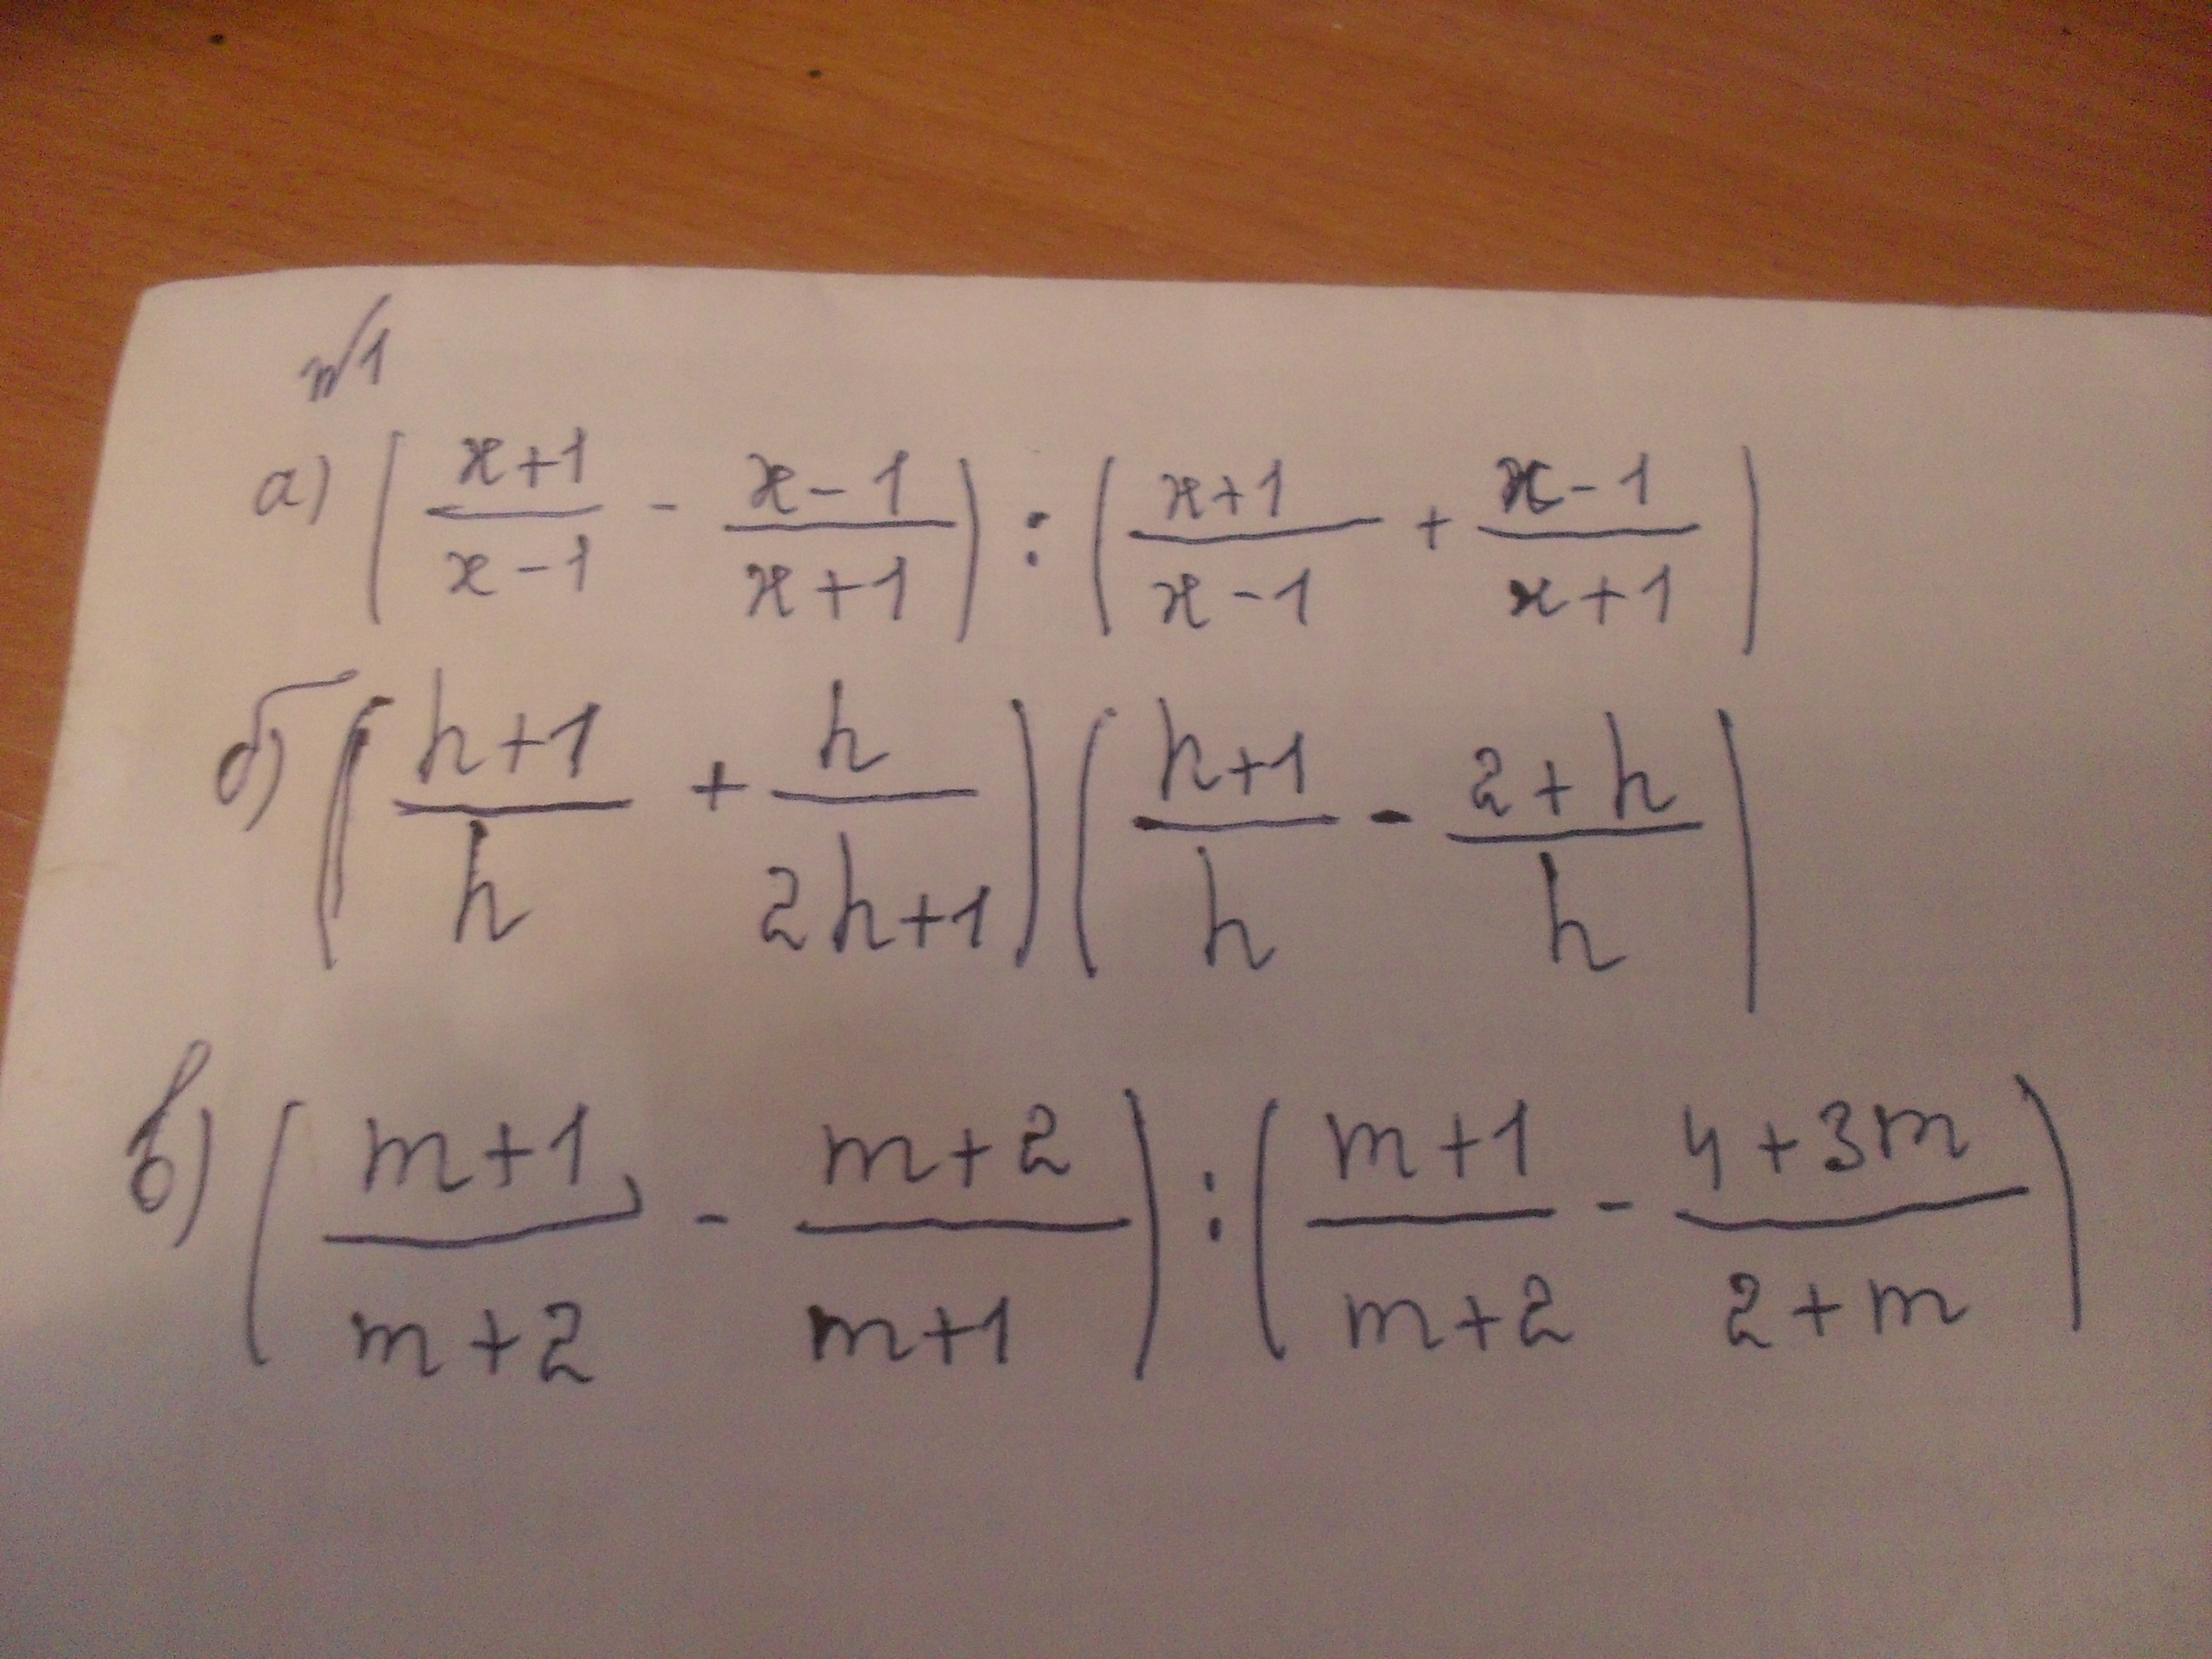 №1
а) ( (x+1)/(x-1) - (x-1)/(x+1) ) : ( (x+1)/(x-1) + (x-1)/(x+1) )
б) ( (h+1)/h + h/(2h+1) ) ( (h+1)/h - (2+h)/h )
в) ( (m+1)/(m+2) - (m+2)/(m+1) ) : ( (m+1)/(m+2) - (4+3m)/(2+m) )